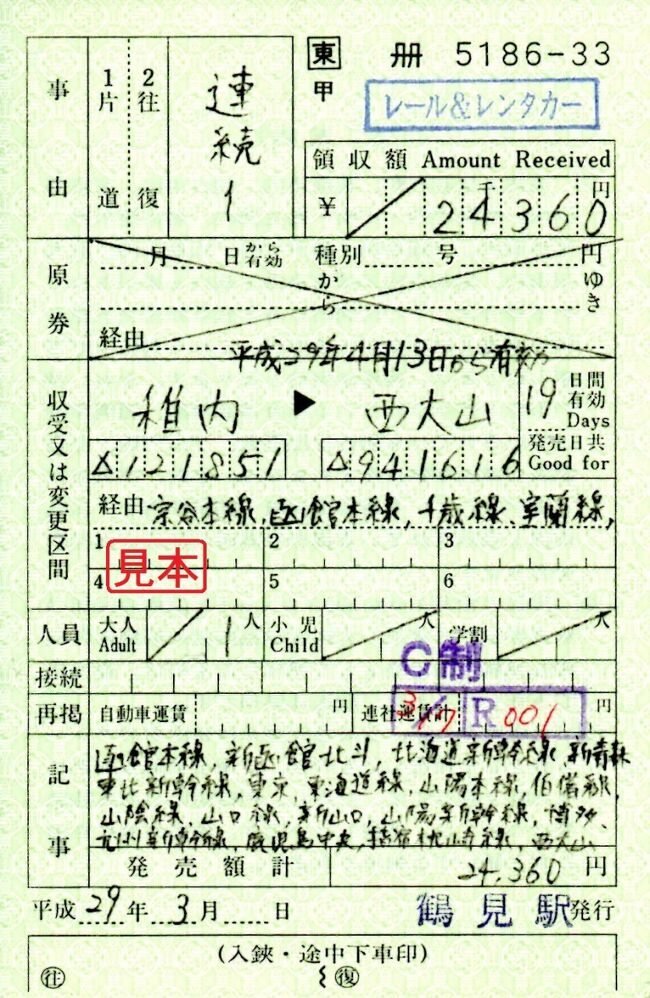 東 冊 5186-33
甲 レール&レンタカー
事由 1片道 2往復 連続1
領収額 Amount Received
¥ 24360 千 円
原券 月 日から有効 種別 号 円
から ゆき
経由
平成29年4月13日から有効
収受又は変更区間 稚内 ▶ 西大山 19 日間有効 Days
△121851 △941616 発売日共 Good for
経由 宗谷本線,函館本線,千歳線、室蘭線,
1 見本 2 3
4 5 6
人員 大人 Adult 1人 小児 Child 人 学割 人
C制
接続
再掲 自動車運賃 円 連社運賃計 円
3/7 R001
記事 函館本線,新函館北斗,北海道新幹線,新青森
東北新幹線,東京,東海道線,山陽本線,伯備線,
山陰線,山口線,新山口,山陽新幹線,博多、
九州新幹線,鹿児島中央,指宿枕崎線,西大山
発売額計 24,360円
平成29年3月 日 鶴見駅発行
(入鋏・途中下車印)
往 復